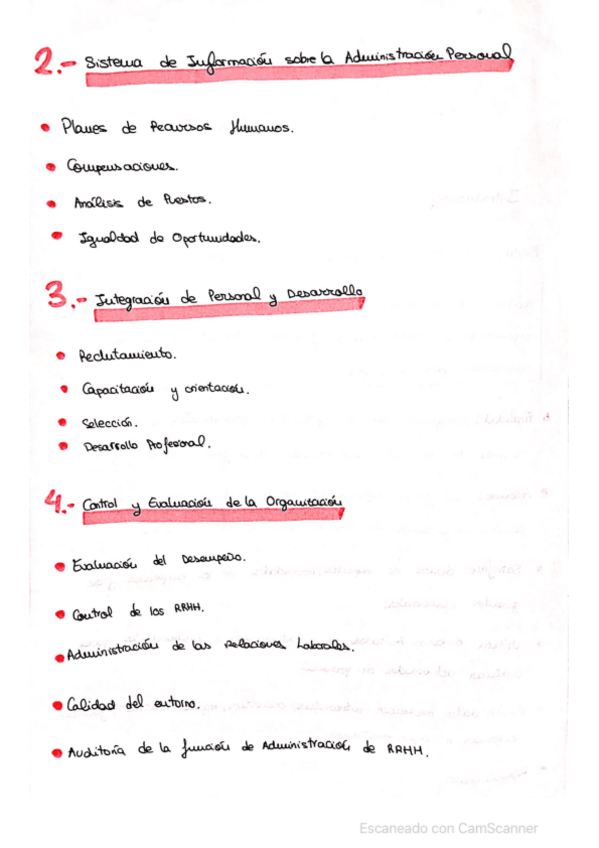 2.- Sistema de Información sobre la Administración Personal
• Planes de Recursos Humanos.
• Compensaciones.
• Análisis de Puestos.
• Igualdad de Oportunidades.
3.- Integración de Personal y Desarrollo
• Reclutamiento.
• Capacitación y orientación.
• Selección.
• Desarrollo Profesional.
4.- Control y Evaluación de la Organización
• Evaluación del Desempeño.
• Control de los RRHH.
• Administración de las Relaciones Laborales.
• Calidad del entorno.
• Auditoría de la función de Administración de RRHH.
Escaneado con CamScanner